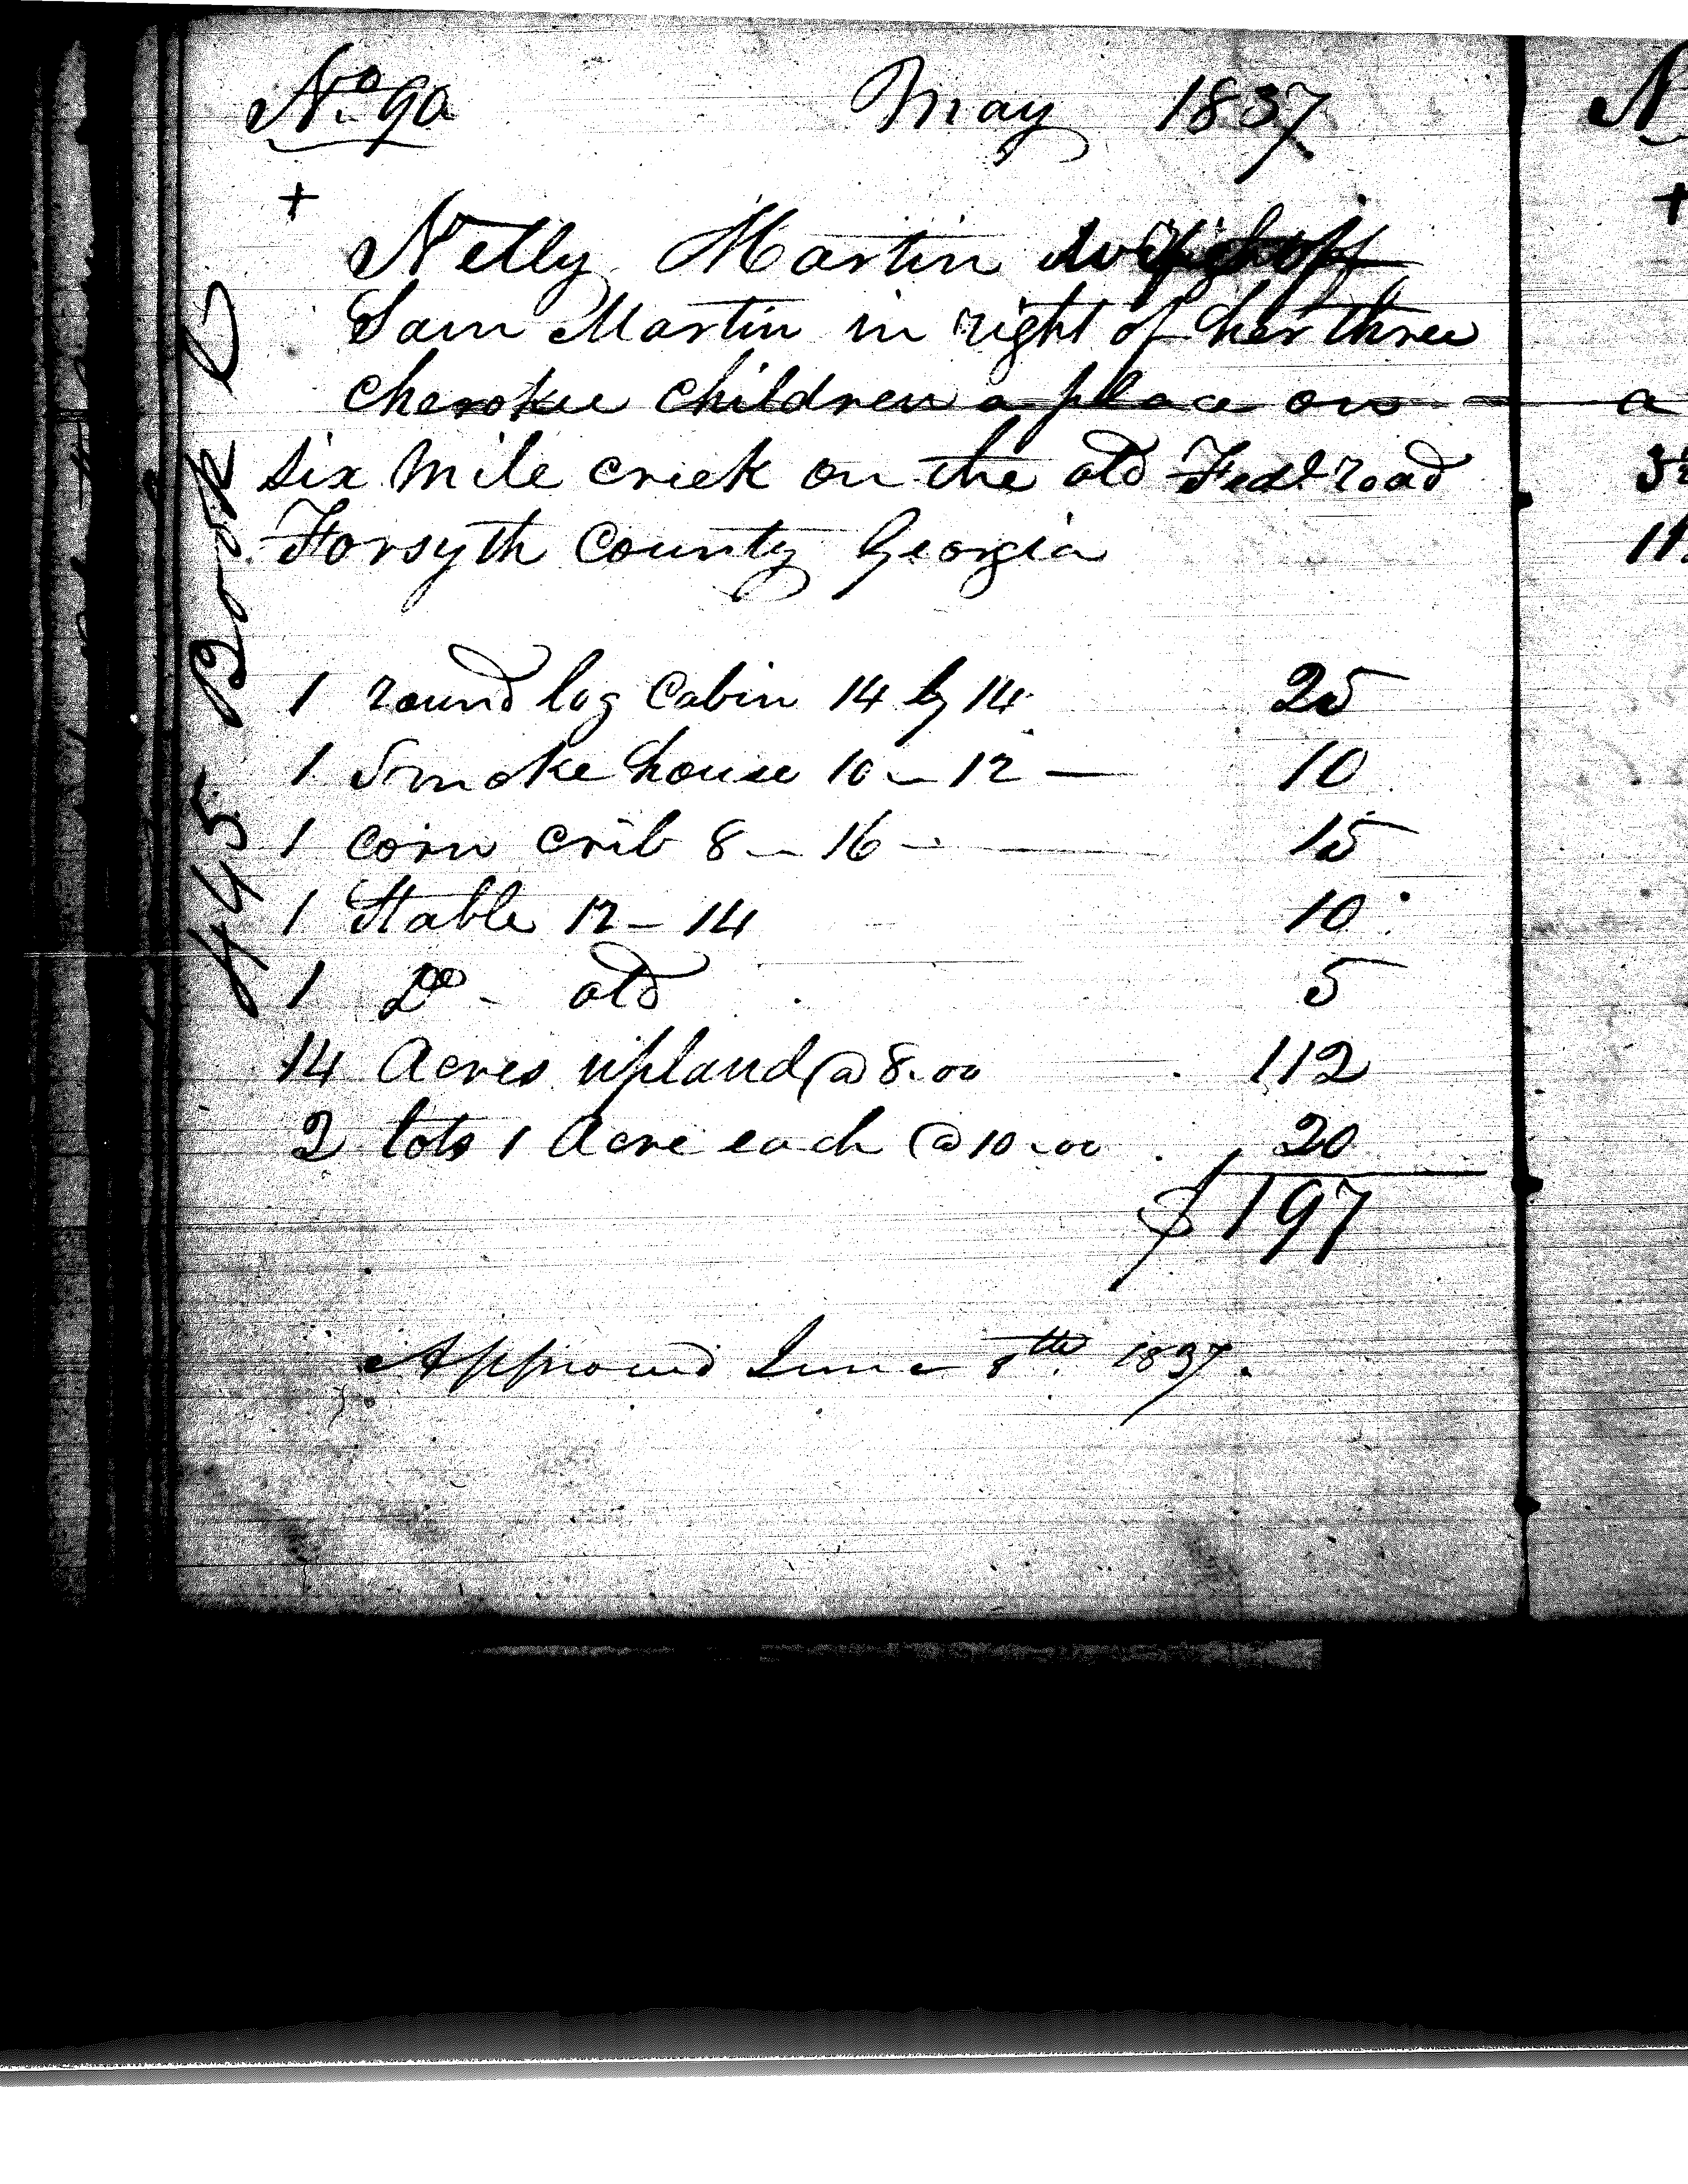 No 90 May 1837
+
Nelly Martin
Sam Martin in right of her three
Cherokee Children a place on
six mile creek on the old Fedl road
Forsyth County Georgia
1 round log Cabin 14 by 14 25
1 Smoke house 10 - 12 — 10
1 corn crib 8 - 16 - 15
1 Stable 12 - 14 10
1 Do - old 5
14 Acres upland @ 8.00 112
2 lots 1 Acre each @ 10.00 20
$ 197
Approved June 8th 1837.
445 Book C
N
+
a